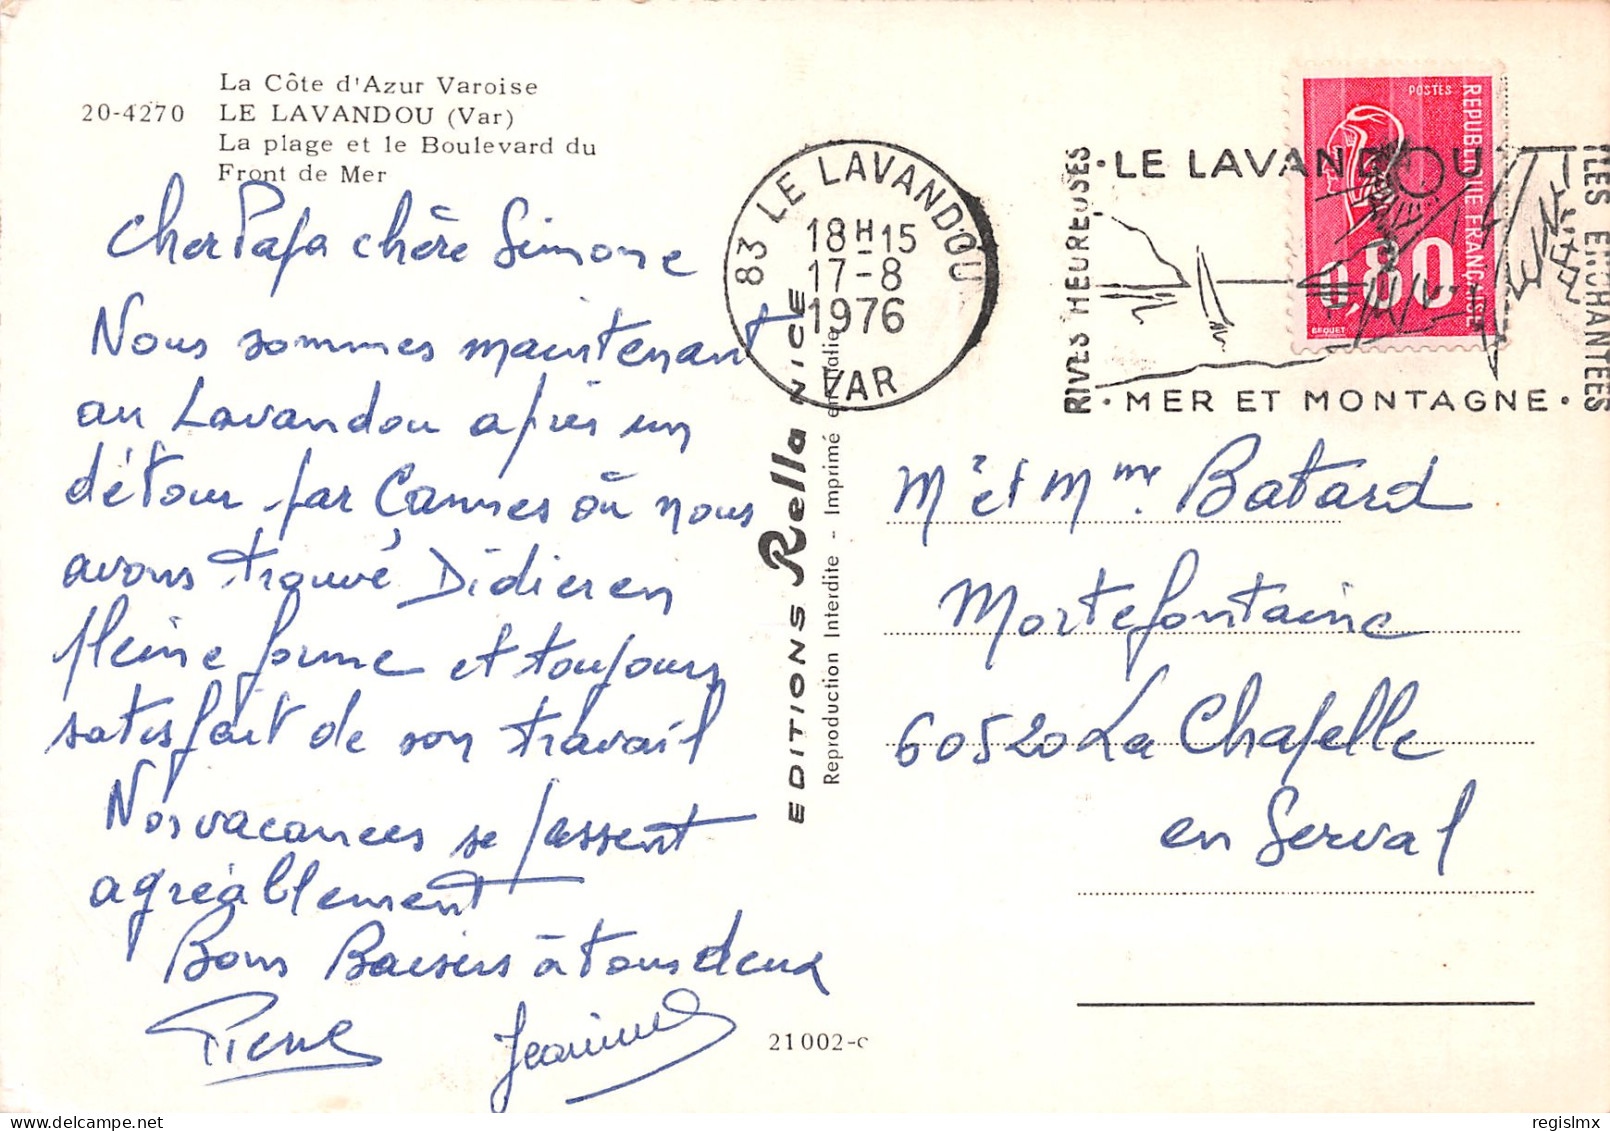 La Côte d'Azur Varoise
20-4270 LE LAVANDOU (Var)
La plage et le Boulevard du
Front de Mer
Cher Papa chère Simone
Nous sommes maintenant
au Lavandou après un
détour par Cannes où nous
avons trouvé Didier en
pleine forme et toujours
satisfait de son travail
Nos vacances se passent
agréablement
Bons Baisers à tous deux
Pierre Jeannine
EDITIONS Rella NICE
Reproduction Interdite - Imprimé en Italie
21002-c
83 LE LAVANDOU
18H15
17-8
1976
VAR
RIVES HEUREUSES
• LE LAVANDOU
• MER ET MONTAGNE •
ILES ENCHANTEES
POSTES
REPUBLIQUE FRANÇAISE
0,80
BEQUET
Mr et Mme Batard
Mortefontaine
60520 La Chapelle
en Serval
regislmx